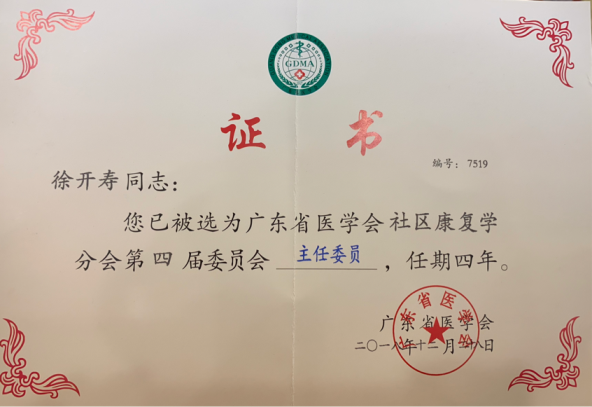 GDMA
证 书
编号：7519
徐开寿同志：
您已被选为广东省医学会社区康复学
分会第四 届委员会 主任委员 ，任期四年。
广东省医学会
二〇一八年十二月廿八日
广东省医学会